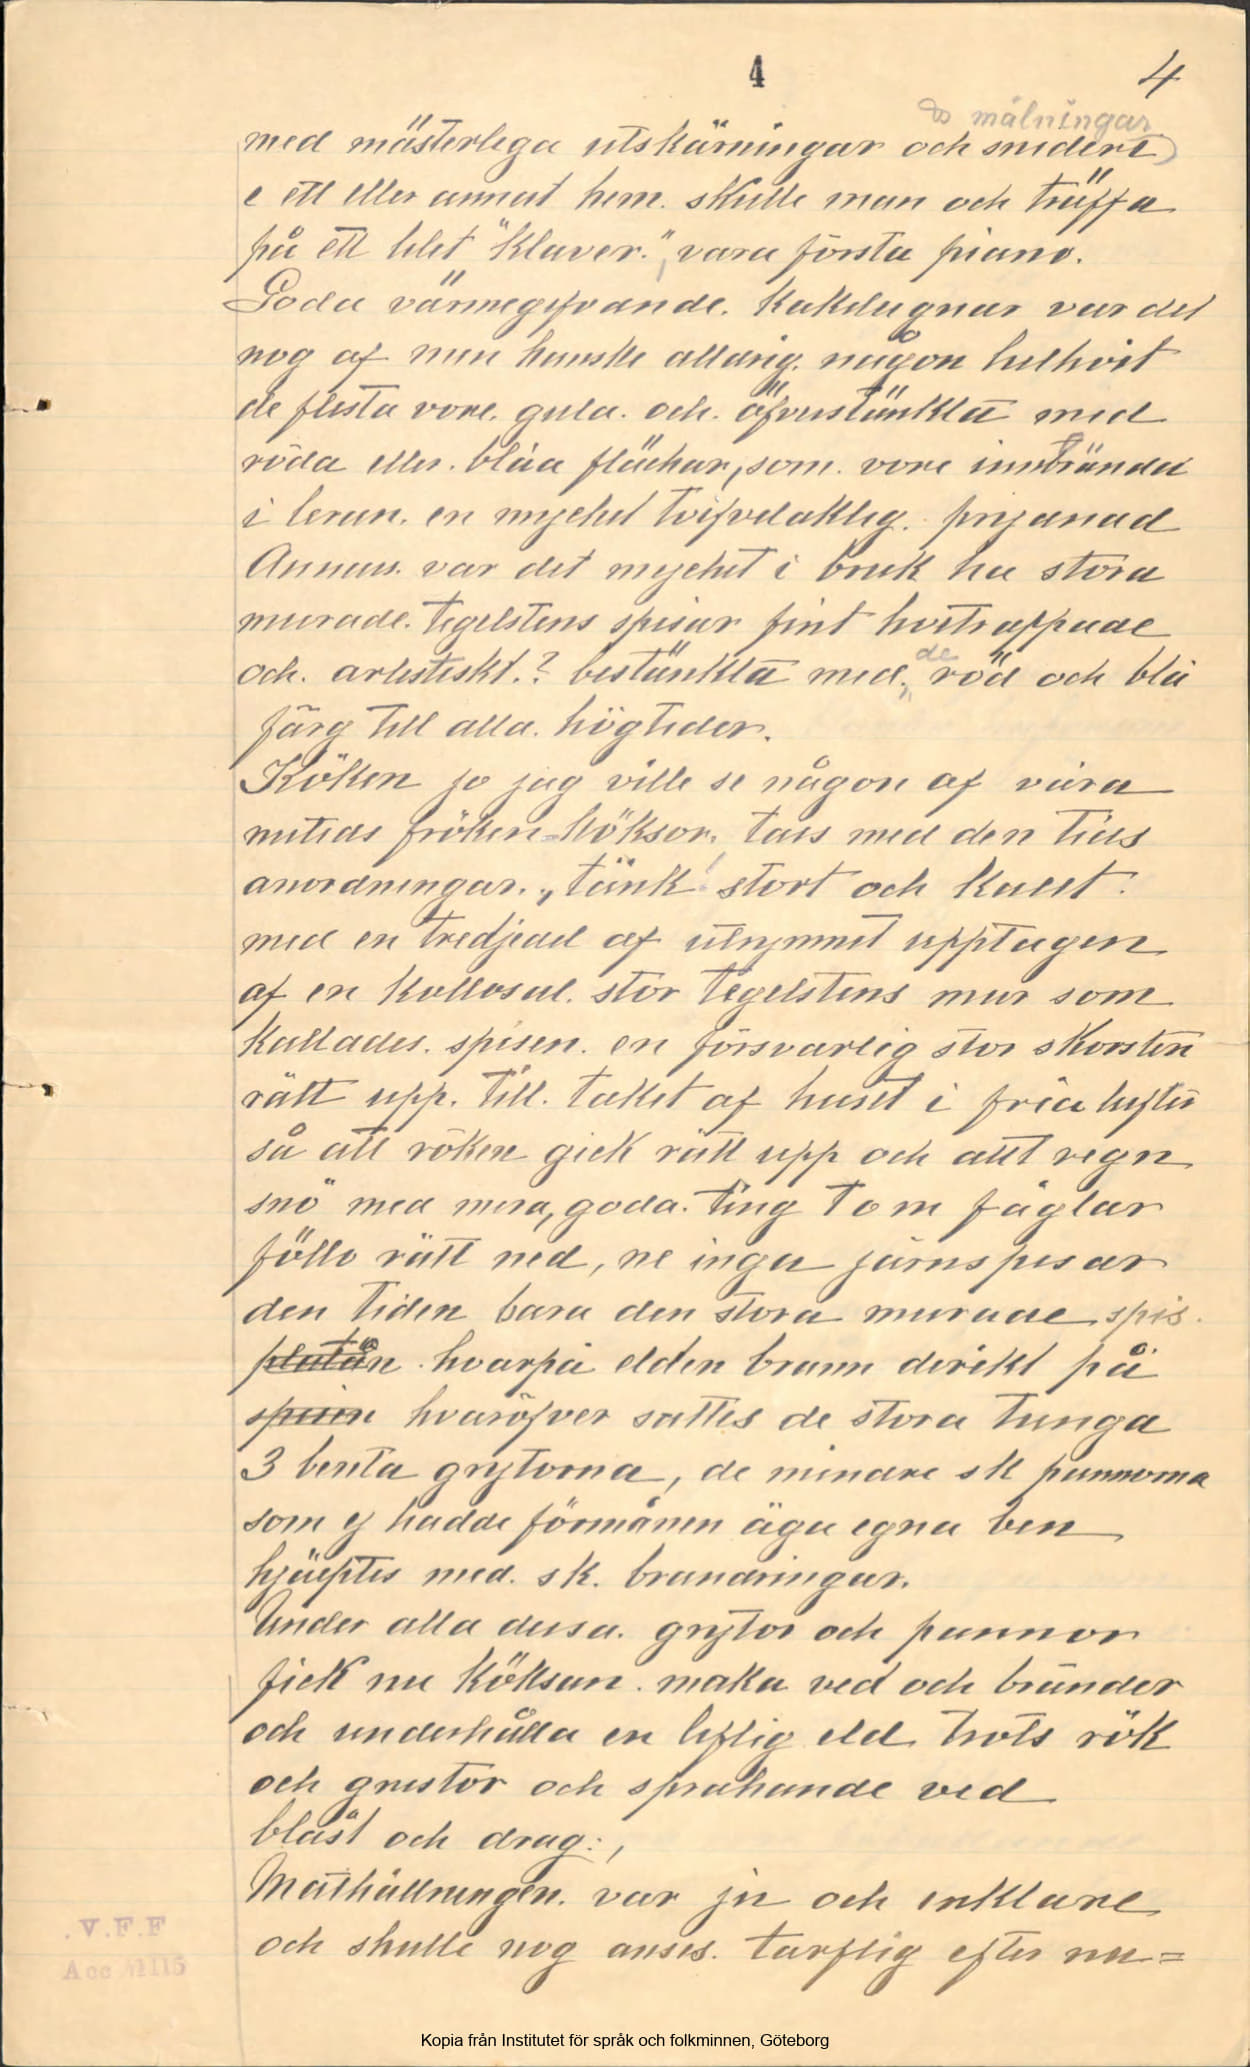 4
4
do målningar
med mästerlega utskärningar och snideri
e ett eller annat hem. skulle man och träffa
på ett litet "Klaver.", vara första piano.
Goda värmegifvande. Kakelugnar var det
nog af men kanske alldrig. någon helhvit
de flesta vore. gula. och. öfverstänkta med
röda eller. blåa fläckar, som. vore innbrända
i leran. en mycket tvifvelaktig. prydnad
Annars. var det mycket i bruk ha stora
murade. tegelstens spisar fint hvitrappade
och. artistiskt.? bestänkta med. de röd och blå
färg till alla. högtider.
Köken jo jag ville se någon af våra
nutids fröken-köksor. tass med den tids
anordningar., tänk! stort och kallt.
med en tredjedel af utrymmet upptagen
af en kollosal. stor tegelstens mur som
kallades. spisen. en försvarlig stor skorsten
rätt upp. till. taket af huset i fria luften
så att röken gick rätt upp och allt regn
snö med mera, goda. ting tom fåglar
föllo rätt ned, ne inga järnspisar
den tiden bara den stora murade spis.
platån. hvarpå elden brann direkt på
spisen hvaröfver sattes de stora tunga
3 benta grytorna, de mindre sk pannorna
som ej hadde förmånen äga egna ben
hjälptes med. sk. brandringar.
Under alla dessa. grytor och pannor
fick nu köksan. maka ved och bränder
och underhålla en liflig eld trots rök
och gnistor och sprakande ved
blåst och drag.,
Mathållningen. var ju och enklare
och skulle nog anses. tarflig efter nu=
V.F.F
Acc 115
Kopia från Institutet för språk och folkminnen, Göteborg